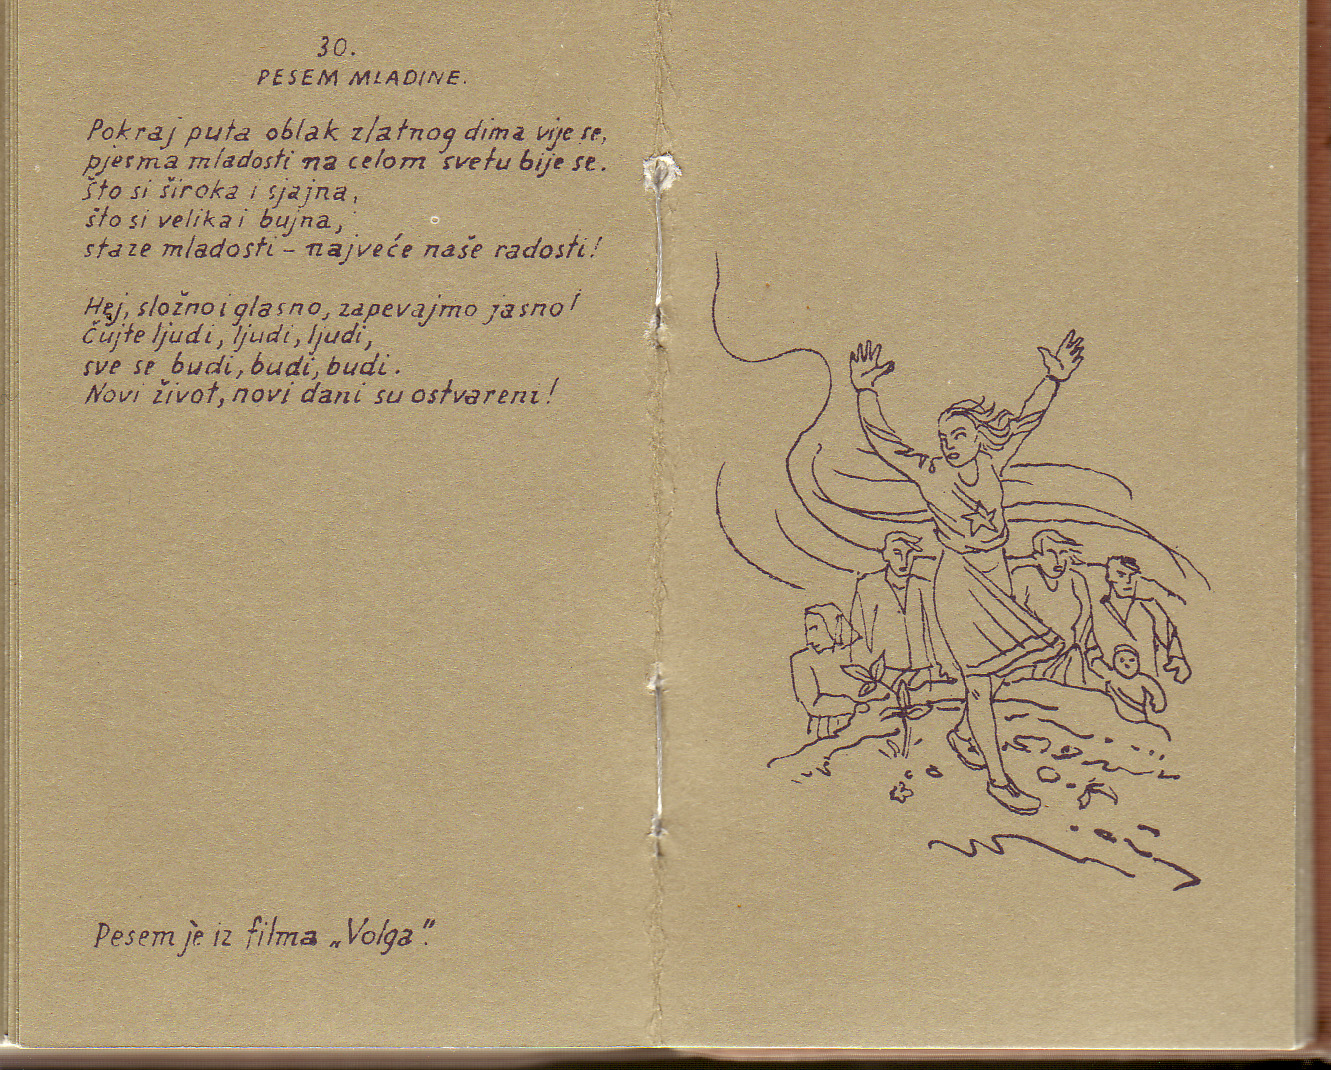 30.
PESEM MLADINE.
Pokraj puta oblak zlatnog dima vije se,
pjesma mladosti na celom svetu bije se.
Što si široka i sjajna,
što si velika i bujna,
staze mladosti – najveće naše radosti!
Hej, složno i glasno, zapevajmo jasno!
Čujte ljudi, ljudi, ljudi,
sve se budi, budi, budi.
Novi život, novi dani su ostvareni!
Pesem je iz filma „Volga“.